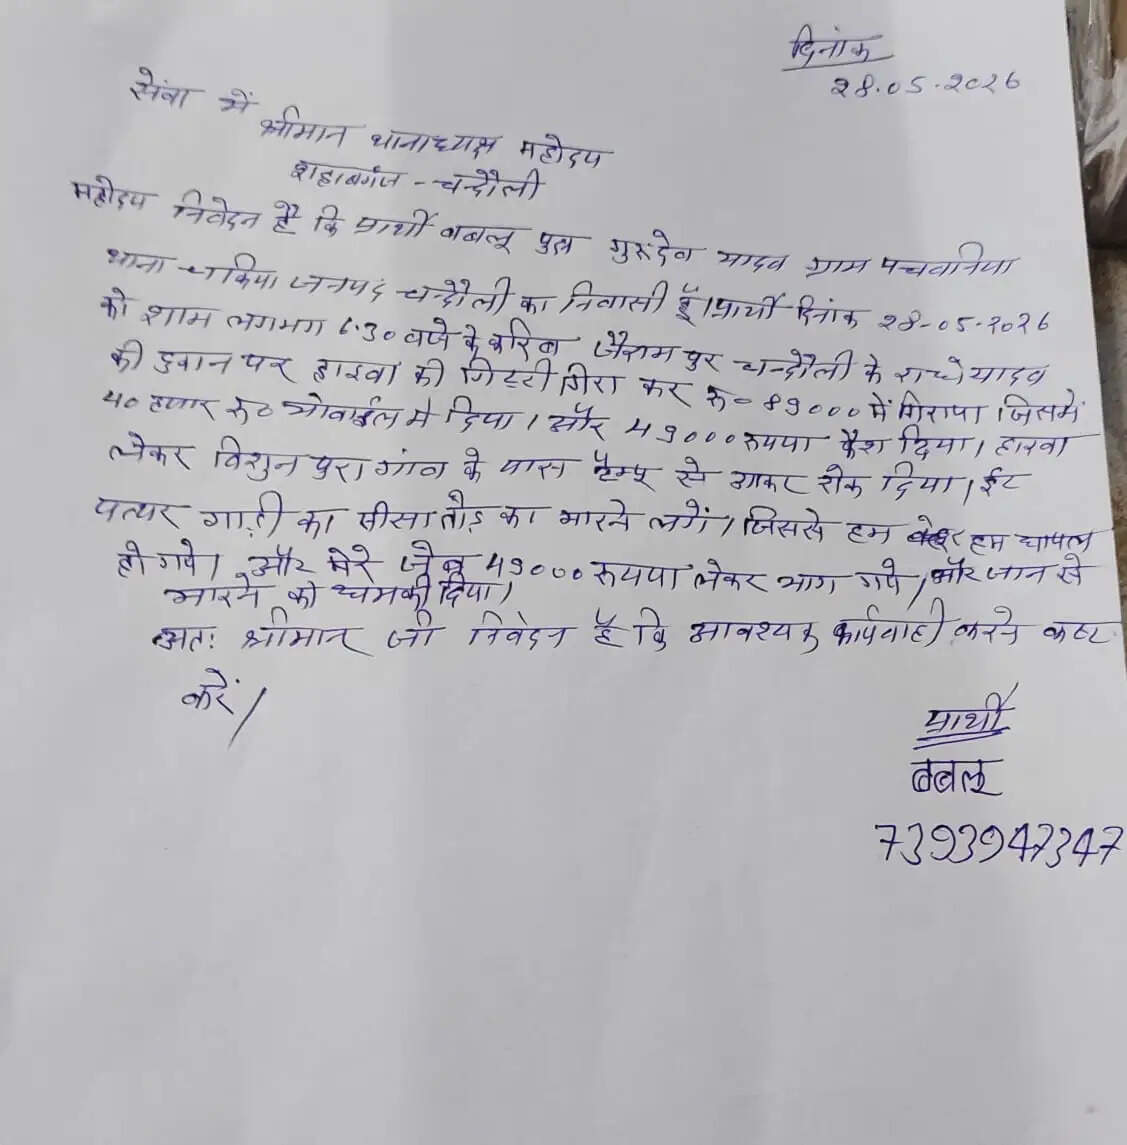 दिनांक
28.05.2026
सेंवा में
श्रीमान थानाध्यक्ष महोदय
शहाबगंज - चन्दौली
महोदय निवेदन है कि प्रार्थी बबलू पुत्र गुरुदेव यादव ग्राम पचवनिया
थाना - चकिया जनपद चन्दौली का निवासी हूँ। प्रार्थी दिनांक 28-05-2026
को शाम लगभग 6.30 बजे के करिब जैरामपुर चन्दौली के राधे यादव
की दुकान पर हाइवा की गिट्टी गिरा कर रु= 89000 में गिराया। जिसमें
40 हजार रु० मोबाईल में दिया। और 49000 रूपया कैश दिया। हाइवा
लेकर विशुनपुरा गांव के पास टैम्पू से आकर रोक दिया। ईट
पत्थर गाड़ी का सीसा तोड़ का मारने लगें। जिससे हम हम घायल
हो गये। और मेरे जेब 49000 रूपया लेकर भाग गये। और जान से
मारने को धमकी दिया।
अतः श्रीमान जी निवेदन है कि आवश्यक कार्यवाही करने कष्ट
करें।
प्रार्थी
बबलू
7393947347